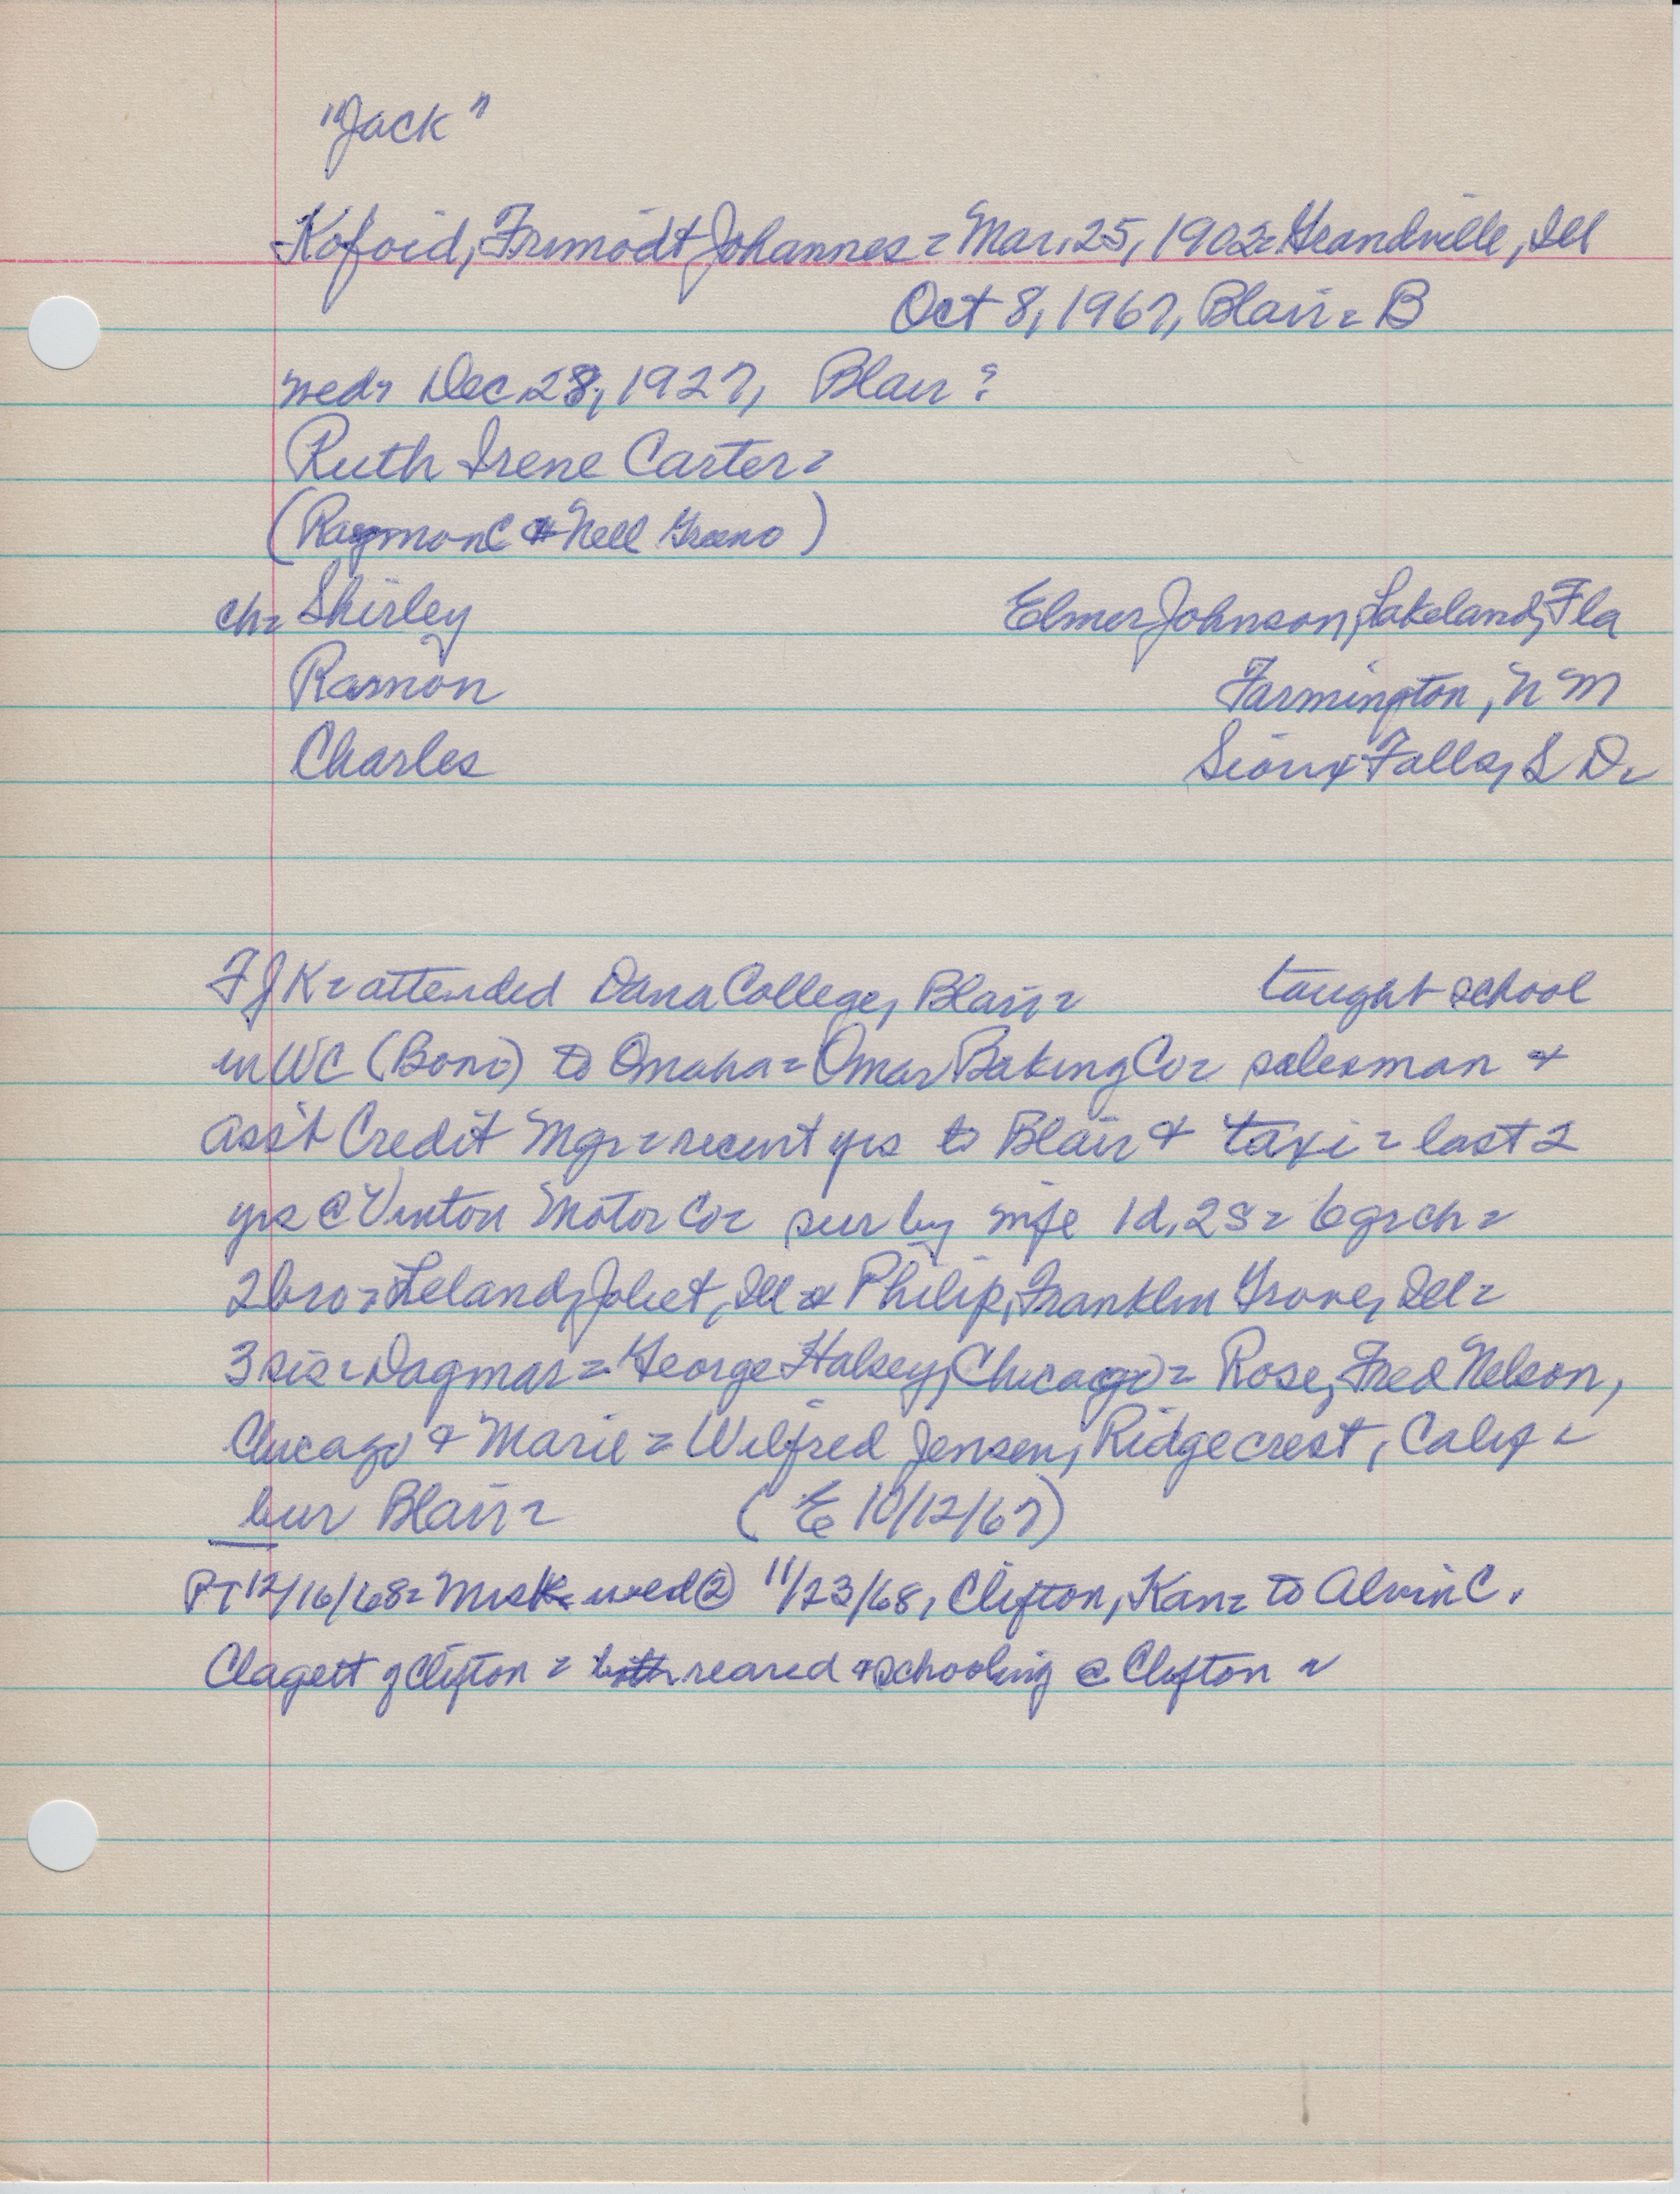 "Jack"
Kofoid, Frimodt Johannes = Mar. 25, 1902 = Grandville, Ill
Oct 8, 1967, Blair = B
wed = Dec 28, 1927, Blair ?
Ruth Irene Carter =
(Raymond & Nell Greeno)
ch = Shirley Elmer Johnson, Lakeland, Fla
Ramon Farmington, N M
Charles Sioux Falls, S D =
FJK = attended Dana College, Blair = taught school
in WC (Bono) to Omaha = Omar Baking Co = salesman &
Ass't Credit Mgr = recent yrs to Blair & taxi = last 2
yrs @ Vinton Motor Co = sur by wife 1d, 2s = 6 grch =
2 bro = Leland, Joliet, Ill & Philip, Franklin Grove, Ill =
3 sis = Dagmar = George Halsey, Chicago = Rose, Fred Nelson,
Chicago & Marie = Wilfred Jensen, Ridgecrest, Calif =
bur Blair = (E 10/12/67)
PT 12/16/68 = Mrs K wed ② 11/23/68, Clifton, Kan = to Alvin C.
Clagett of Clifton = both reared & schooling @ Clifton =